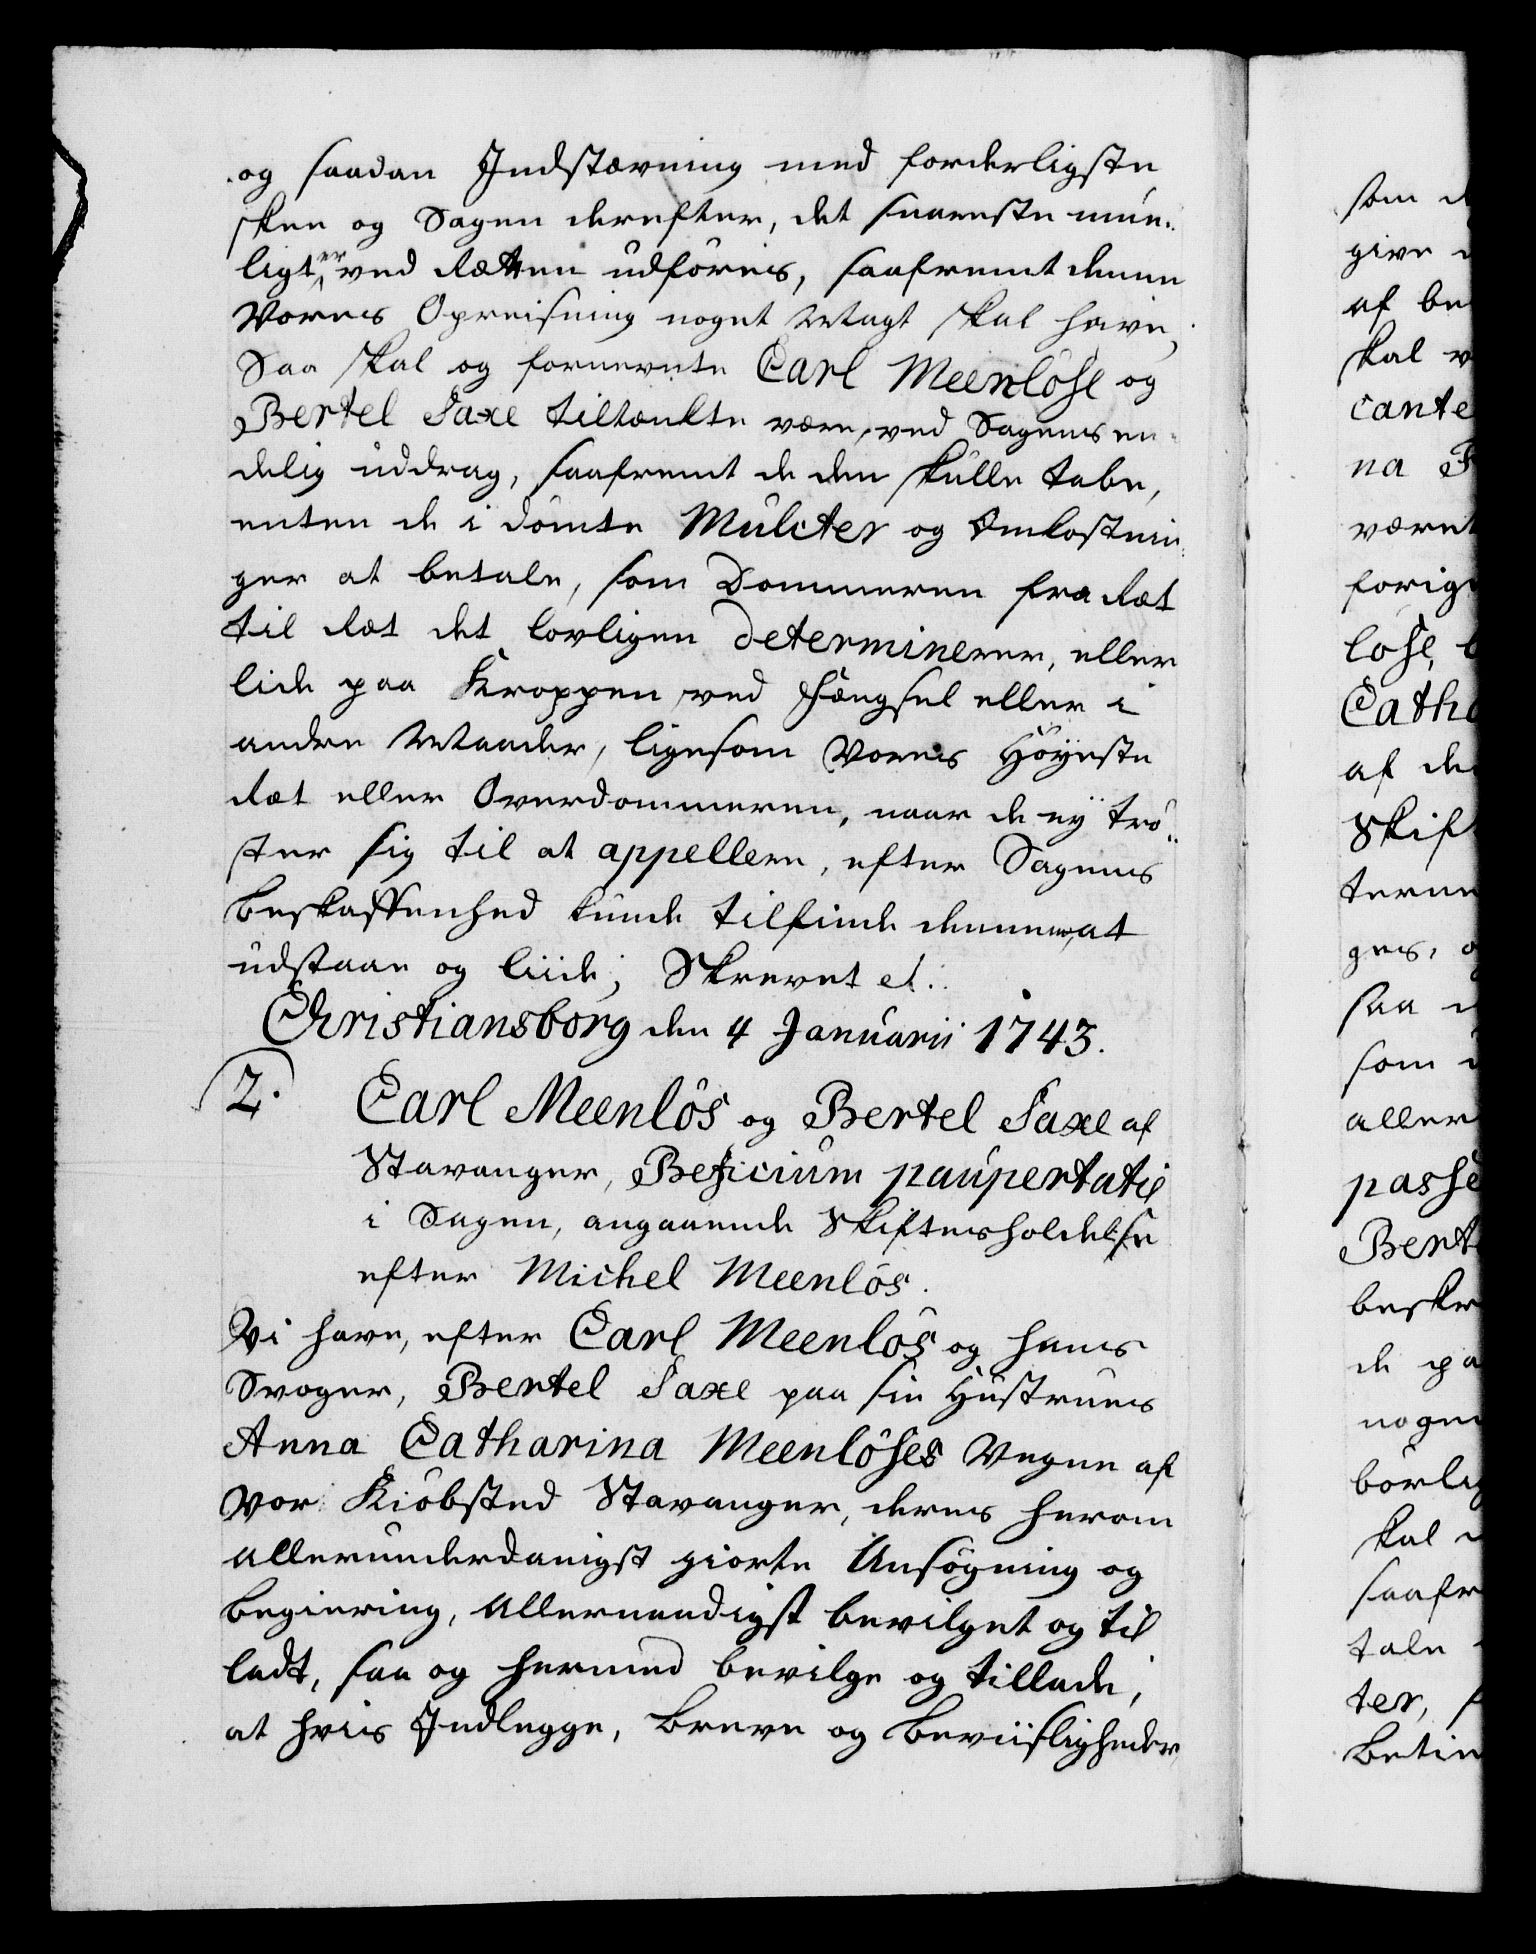 og saadan Indstævning med forderligste
skee og Sagen derefter, det snareste mue-
ligt er, ved Rætten udføres, saafremt denne
Vores Opreisning noget Magt skal have,
Saa skal og fornevnte Carl Meenlöse og
Bertel Saxe tiltænkte være, ved Sagens en-
delig uddrag, saafremt de den skulle tabe,
enten de i dömte Mulcter og Omkostnin-
ger at betale, som Dommeren fra Ræt
til Ræt det lovligen determinerer, eller
lide paa Kroppen ved Fængsel eller i
andre Maader, ligesom Vores Höyeste
Ræt eller Overdommeren, naar de ey trö-
ster sig til at appellere, efter Sagens
Beskaffenhed kunde tilfinde dennem, at
udstaae og liide; Skrevet et.
Christiansborg den 4 Januarii 1743.
2. Carl Meenlös og Bertel Saxe af
Stavanger, Beficium paupertatis
i Sagen, angaaende Skiftesholdelse
efter Michel Meenlös.
Vi have, efter Carl Meenlös og hans
Svoger, Bertel Saxe paa sin Hustrues
Anna Catharina Meenlöses Vegne af
vor Kiöbsted Stavanger, deres herom
allerunderdanigst giorte Ansögning og
Begiering, Allernaadigst bevilget og til
ladt, saa og hermed bevilge og tillade,
at hvis Indlegge, Breve og Beviisligheder,
som d
give
af be
skal v
cante
na F
været
forige
löse,
Catha
af de
Skift
terne
ges,
saa
som
aller
passe
Berte
beskr
de pa
nogen
börlig
skal
saafr
tale
ter,
Betin